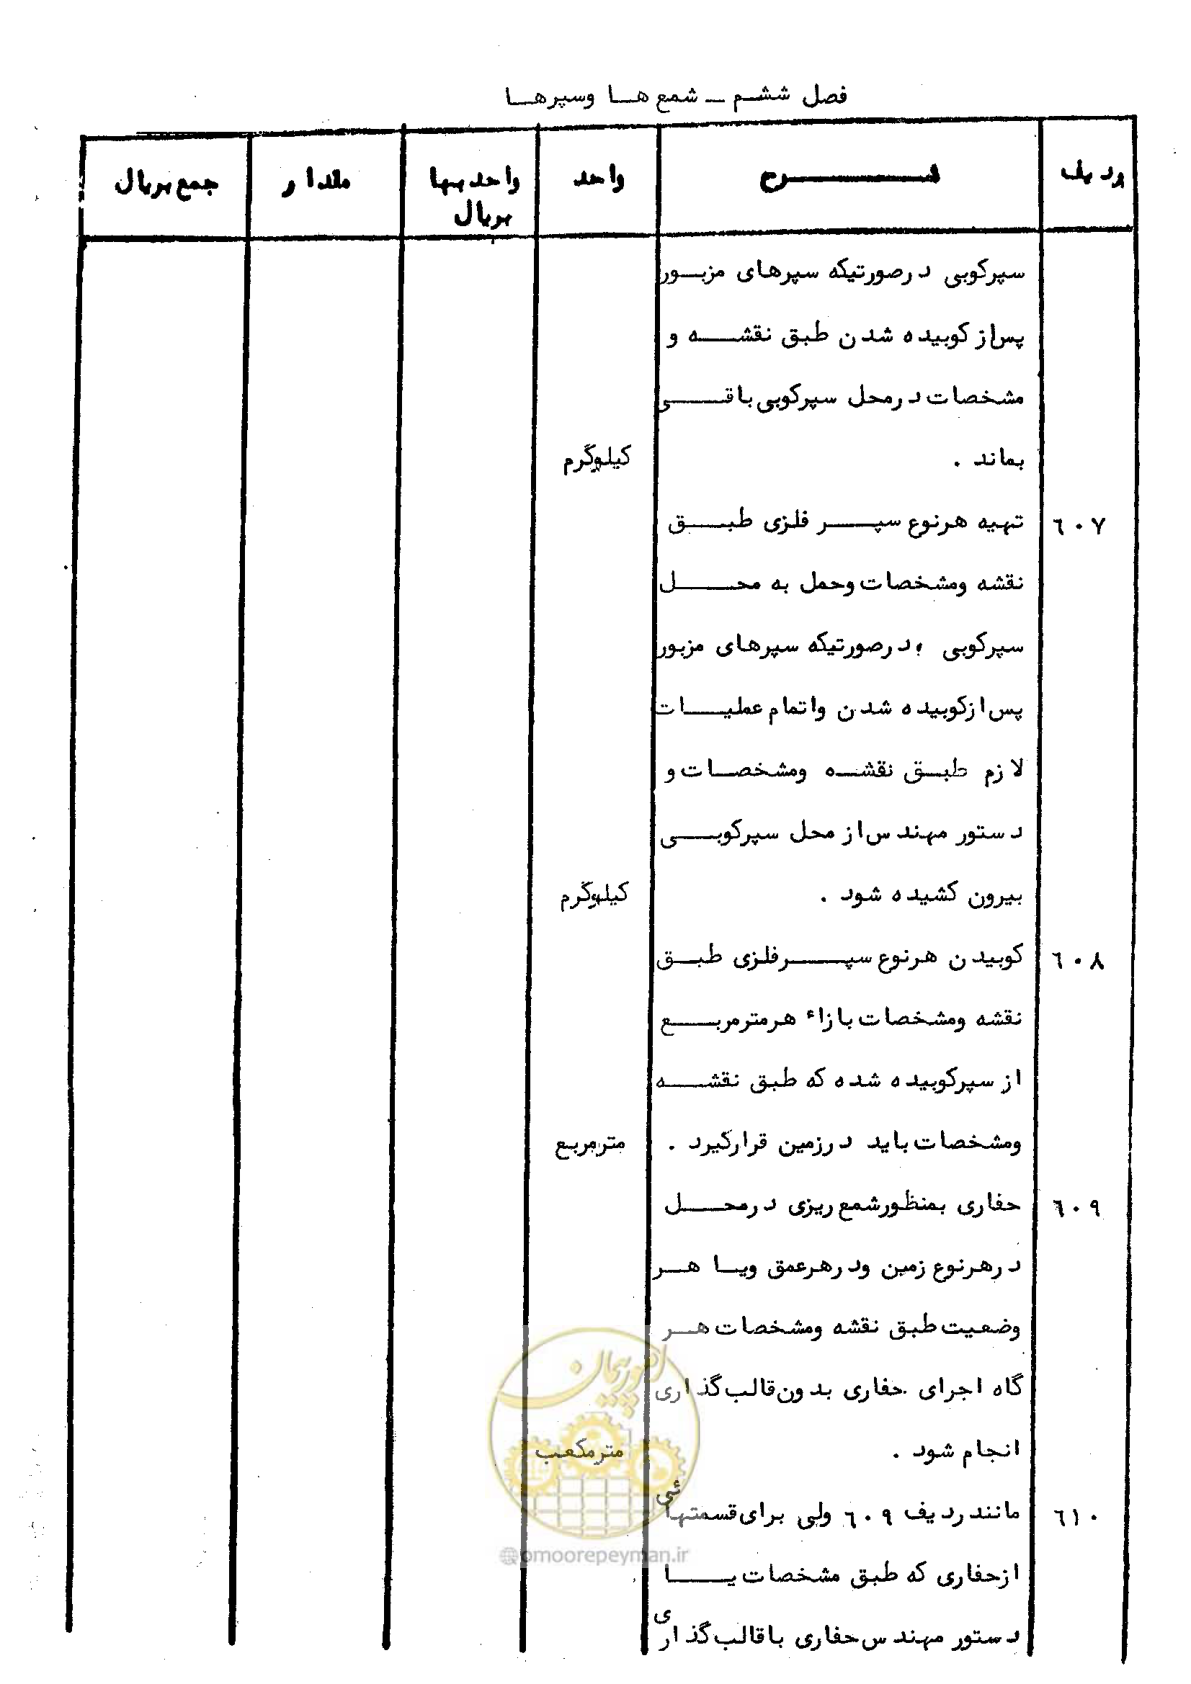 فصل ششم ـ شمع ها وسپرها
ردیف شرح واحد واحد بها مقدار جمع بریال
بریال
سپرکوبی درصورتیکه سپرهای مزبور
پس از کوبیده شدن طبق نقشه و
مشخصات درمحل سپرکوبی باقی
بماند . کیلوگرم
٦٠٧ تهیه هرنوع سپر فلزی طبق
نقشه ومشخصات وحمل به محل
سپرکوبی ، درصورتیکه سپرهای مزبور
پس ازکوبیده شدن واتمام عملیات
لازم طبق نقشه ومشخصات و
دستور مهندس از محل سپرکوبی
بیرون کشیده شود . کیلوگرم
٦٠٨ کوبیدن هرنوع سپرفلزی طبق
نقشه ومشخصات بازاء هرمترمربع
از سپرکوبیده شده که طبق نقشه
ومشخصات باید درزمین قرارگیرد . مترمربع
٦٠٩ حفاری بمنظورشمع ریزی درمحل
درهرنوع زمین ودرهرعمق ویا هر
وضعیت طبق نقشه ومشخصات هر
گاه اجرای حفاری بدون قالب گذاری
انجام شود . مترمکعب
٦١٠ مانند ردیف ٦٠٩ ولی برای قسمتهائی
ازحفاری که طبق مشخصات یا
دستور مهندس حفاری باقالب گذاری
امور پیمان
@omoorepeyman.ir